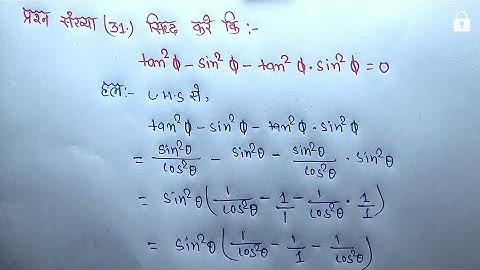 प्रश्न संख्या (31.) सिद्ध करें कि :-
tan²ϕ - sin²ϕ - tan²ϕ · sin²ϕ = 0
हल:- L.H.S से,
tan²ϕ - sin²ϕ - tan²ϕ · sin²ϕ
= sin²θ/cos²θ - sin²θ - sin²θ/cos²θ · sin²θ
= sin²θ(1/cos²θ - 1/1 - 1/cos²θ · 1/1)
= sin²θ(1/cos²θ - 1/1 - 1/cos²θ)